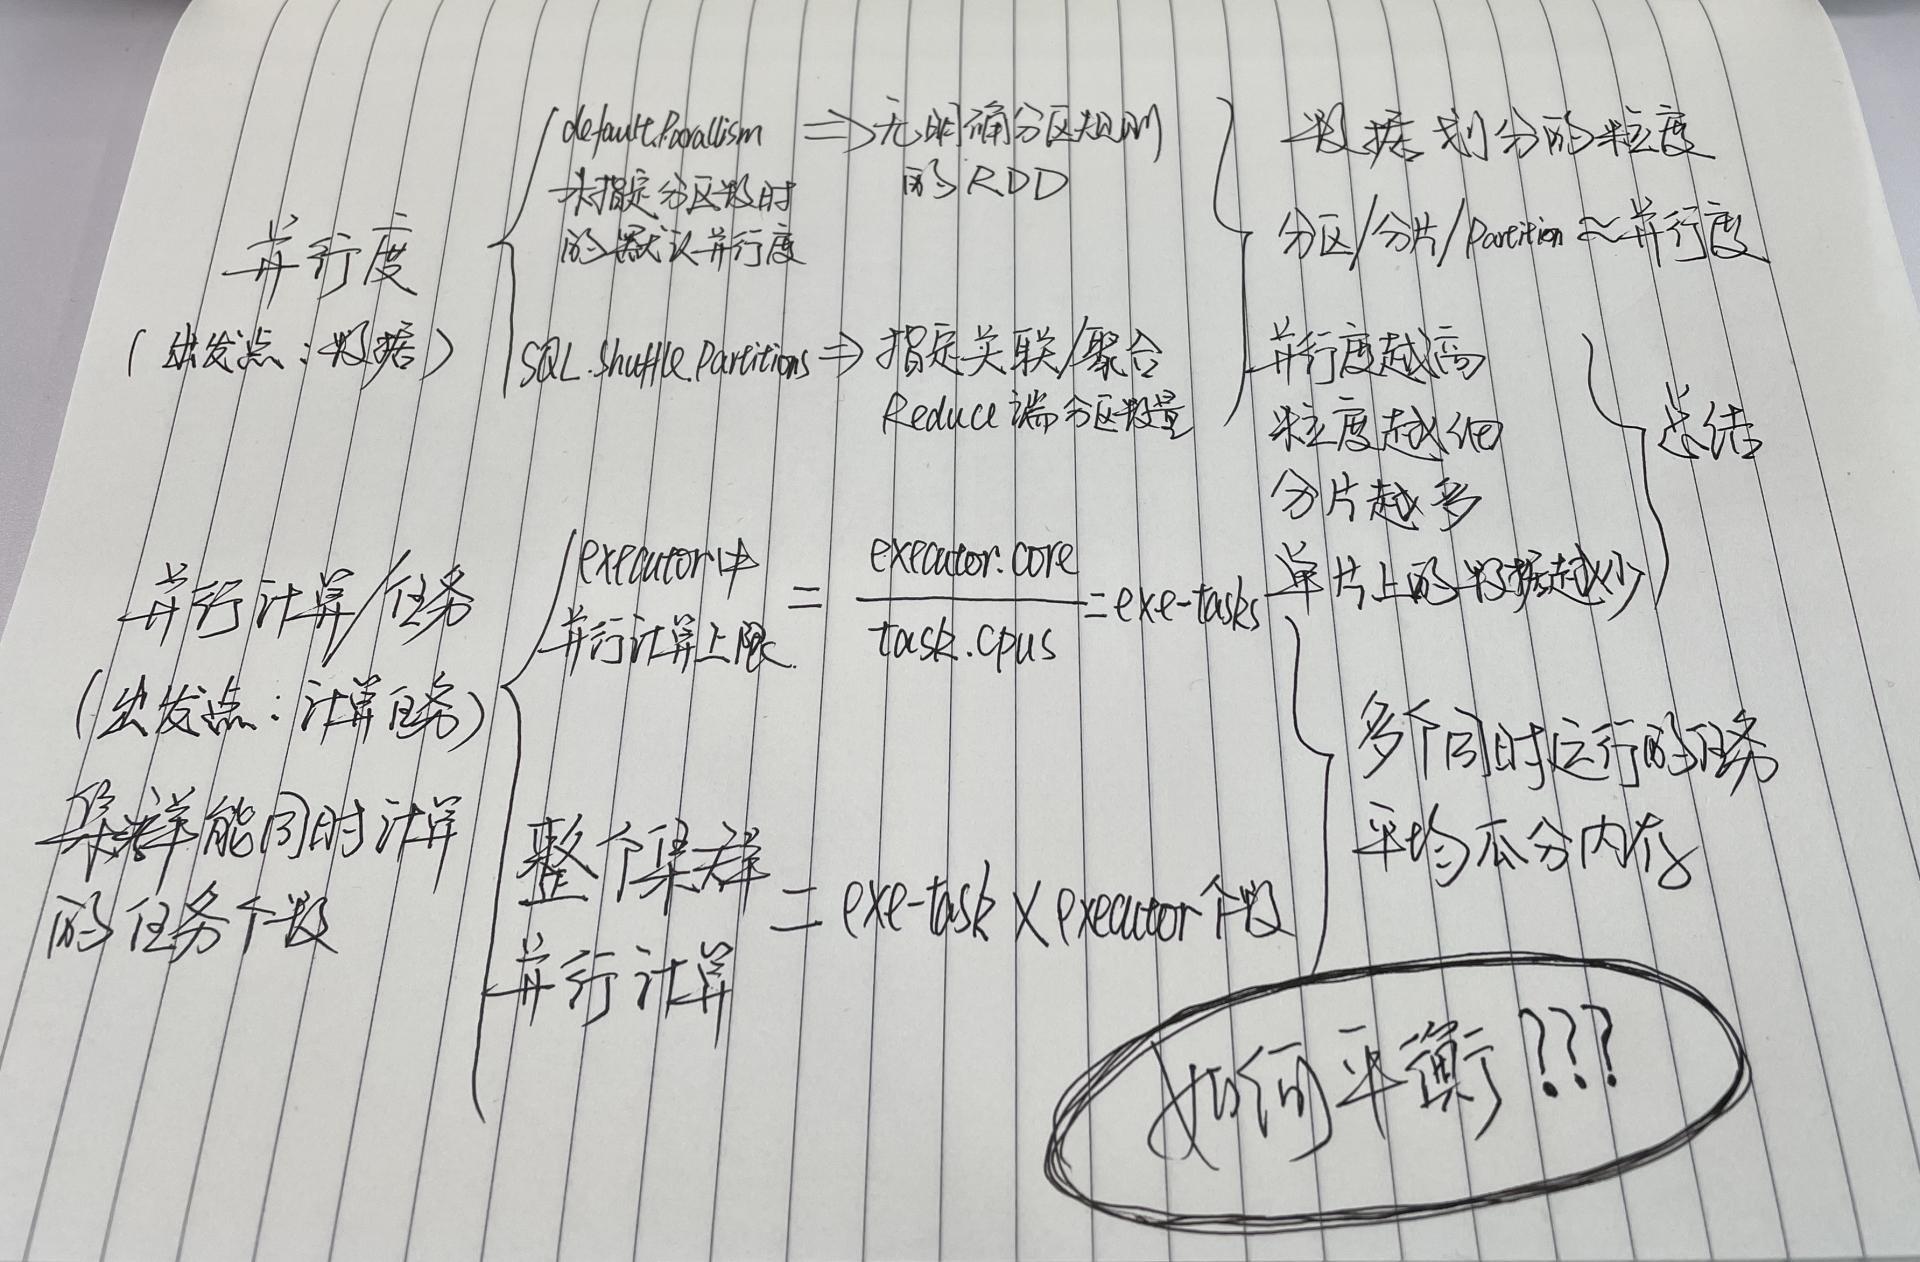 并行度
(出发点:数据)
default.Parallism
未指定分区数时
的默认并行度
⇒无明确分区规则
的RDD
SQL.Shuffle.Partitions⇒
指定关联/聚合
Reduce端分区数量
数据划分的粒度
分区/分片/Partition≈并行度
并行度越高
粒度越细
分片越多
单片上的数据越少
总结
并行计算/任务
(出发点:计算任务)
集群能同时计算
的任务个数
executor中
并行计算上限
=
executor.core
task.cpus
=exe-tasks
整个集群
并行计算
=exe-task×executor个数
多个同时运行的任务
平均瓜分内存
如何平衡???